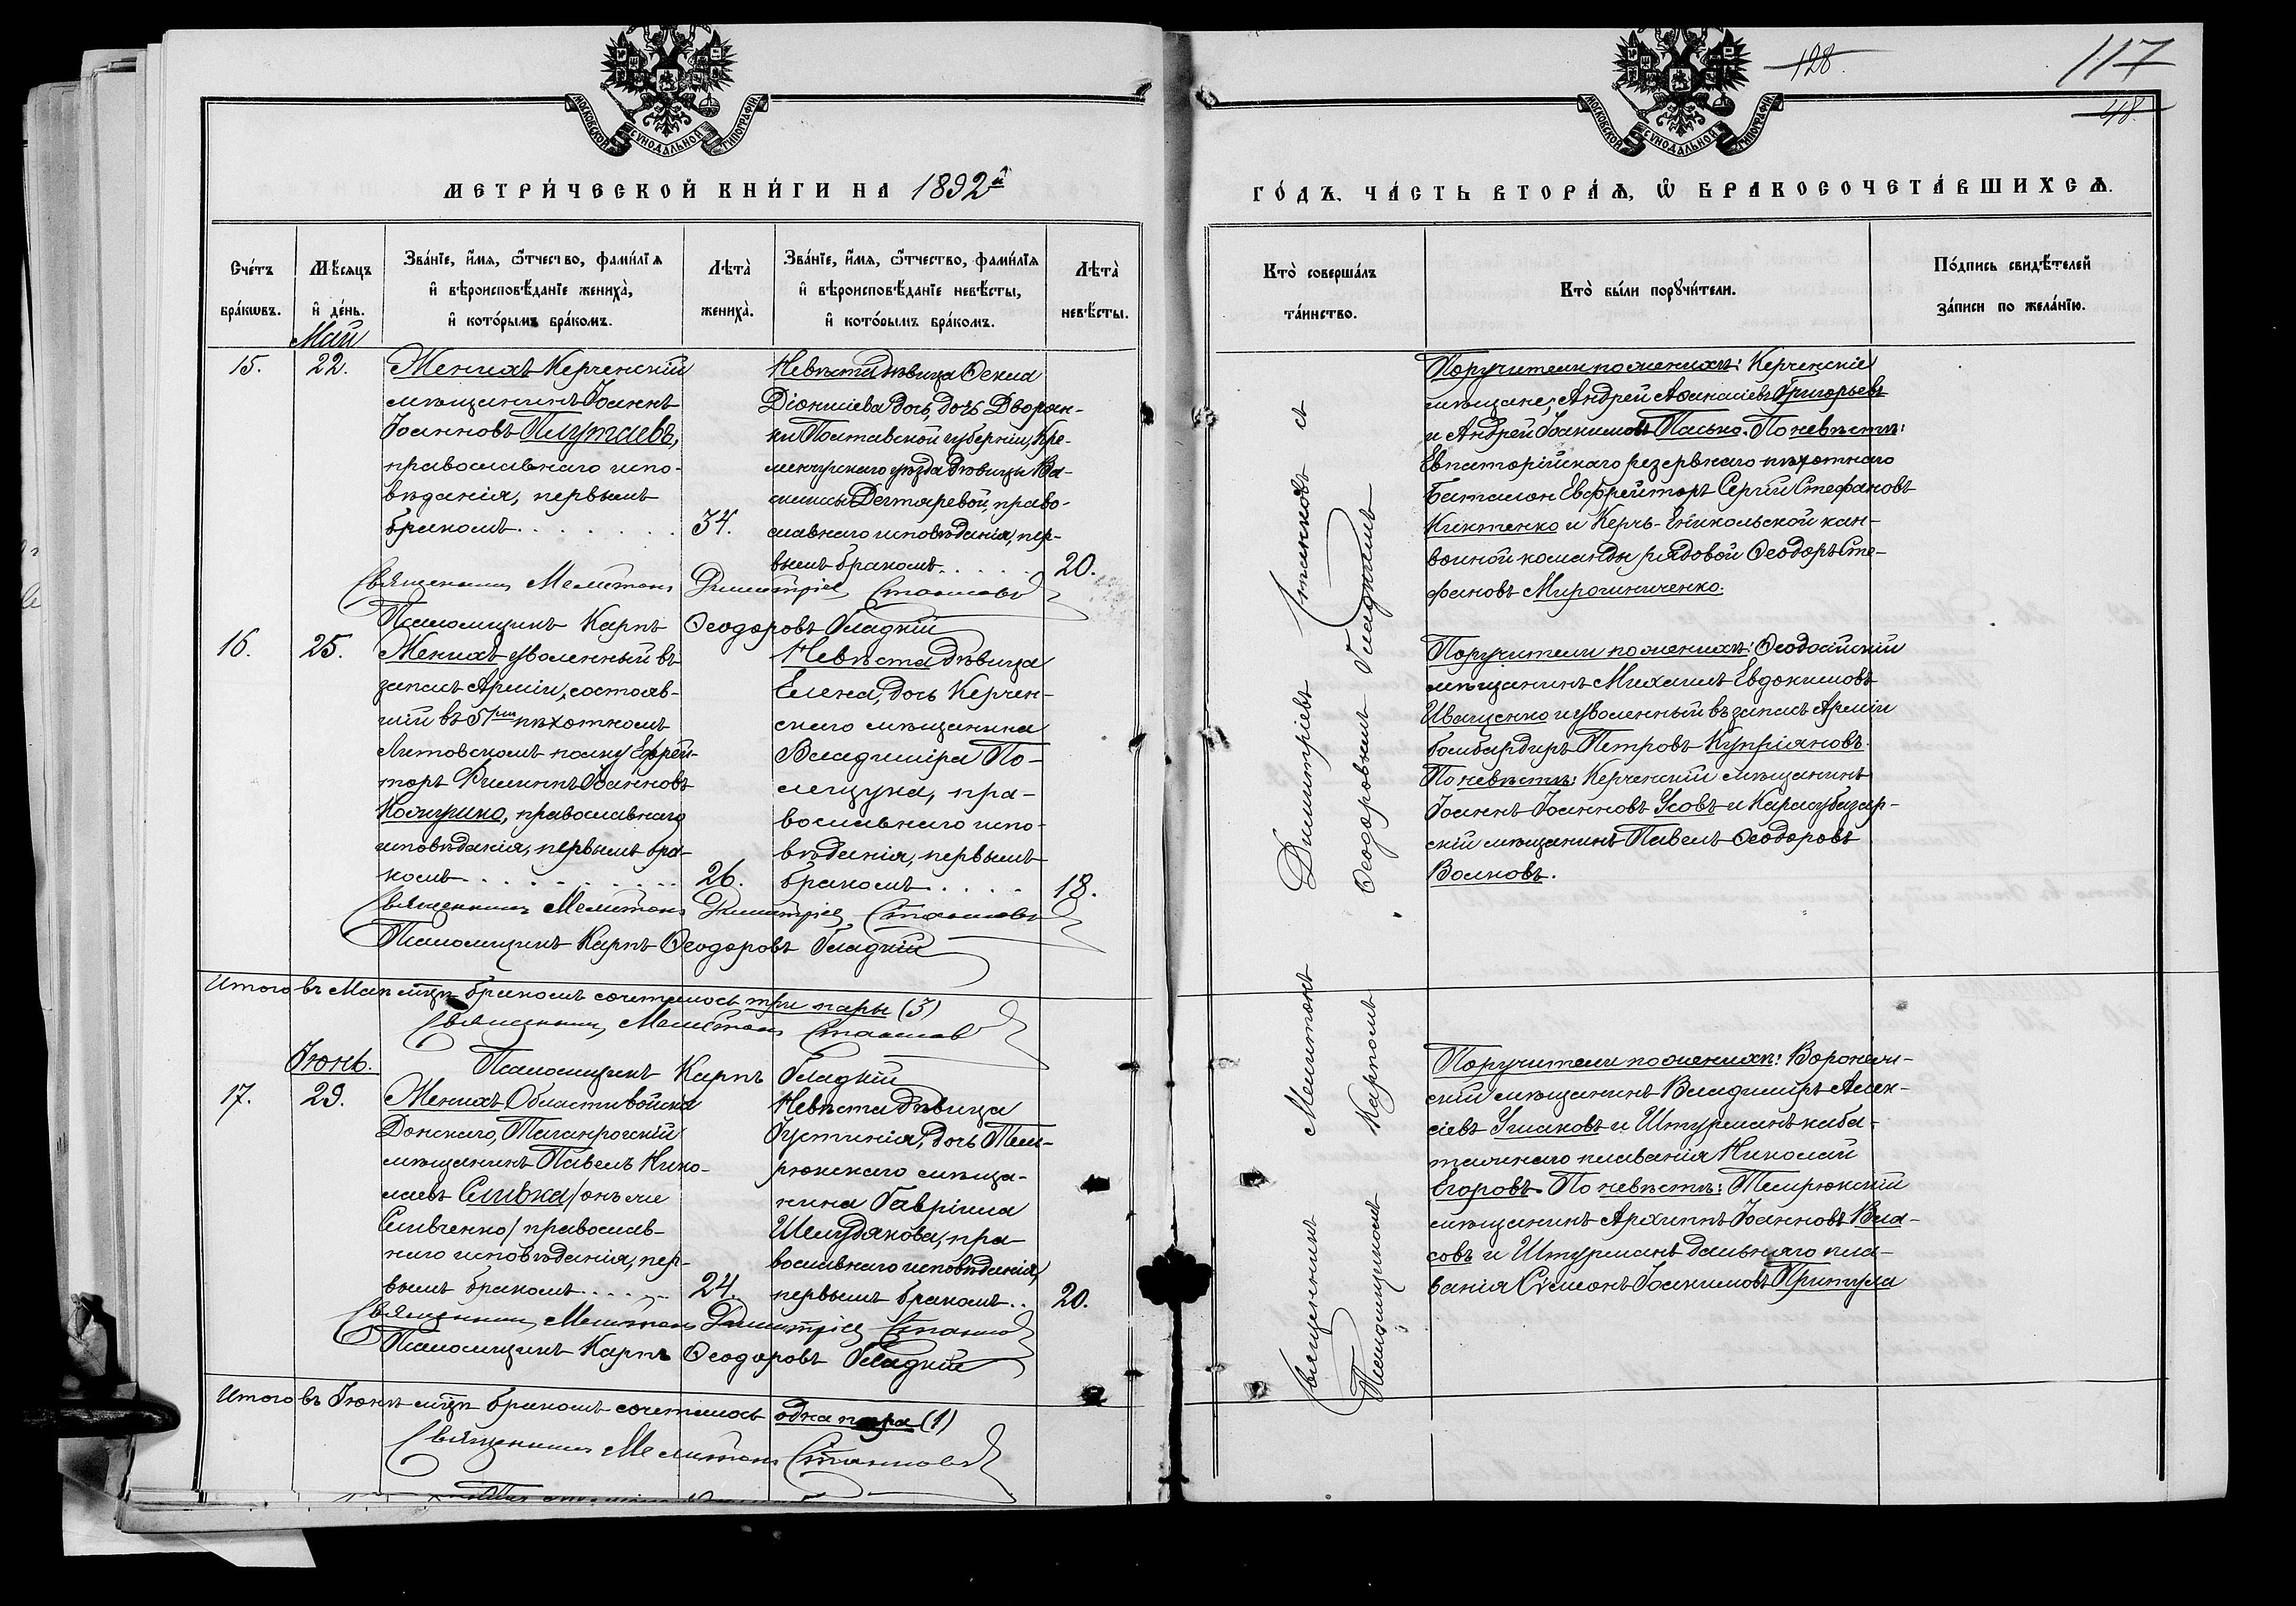 МОСКОВСКОЙ СѴНОДАЛЬНОЙ ТИПОГРАФІИ
МЕТРИ́ЧЕСКОЙ КНИ́ГИ НА 1892й
Сче́тъ
бра́кωвъ.
Мѣ́сяцъ
и҆ де́нь.
Зва́нїе, и҆́мя, ѻ҆́тчество, фами́лїя
и҆ вѣроисповѣ́данїе жениха̀,
и҆ кото́рымъ бра́комъ.
Лѣта̀
жениха̀.
Зва́нїе, и҆́мя, ѻ҆́тчество, фами́лїя
и҆ вѣроисповѣ́данїе невѣ́сты,
и҆ кото́рымъ бра́комъ.
Лѣта̀
невѣ́сты.
Май
15.
22.
Женихъ Керченскій
мѣщанинъ Іоаннъ
Іоанновъ Плутаевъ,
православнаго испо-
вѣданія, первымъ
бракомъ. . . . . . .
34.
Невѣста дѣвица Ѳекла
Діонисіева дочь, дочь Дворян-
ки Полтавской губерніи, Кре-
менчугскаго уѣзда дѣвицы Ва-
силисы Дегтяревой, право-
славнаго исповѣданія, пер-
вымъ бракомъ. . . . .
20.
Священникъ Мелитонъ Димитріев Станковъ
Псаломщикъ Карпъ Ѳеодоровъ Гладкій
16.
25.
Женихъ уволенный въ
запасъ Арміи, состояв-
шій въ 51мъ пѣхотномъ
Литовскомъ полку Ефрей-
торъ Филиппъ Іоанновъ
Кожушко, православнаго
исповѣданія, первымъ бра-
комъ. . . . . . . . . .
26.
Невѣста дѣвица
Елена, дочь Керчен-
скаго мѣщанина
Владиміра По-
лищука, пра-
вославнаго испо-
вѣданія, первымъ
бракомъ. . . . .
18.
Священникъ Мелитонъ Димитріев Станковъ
Псаломщикъ Карпъ Ѳеодоровъ Гладкій
Итого въ Маѣ мцѣ бракомъ сочеталось три пары (3)
Священникъ Мелитонъ Станков
Псаломщикъ Карпъ Гладкій
Іюнь.
17.
29.
Женихъ Области войска
Донскаго, Таганрогскій
мѣщанинъ Павелъ Нико-
лаевъ Сливка /онъ же
Сливченко/ православ-
наго исповѣданія, пер-
вымъ бракомъ. . . . .
24.
Невѣста дѣвица
Іустинія, дочь Тем-
рюкскаго мѣща-
нина Гавріила
Шелудякова, пра-
вославнаго исповѣданія,
первымъ бракомъ. .
20.
Священникъ Мелитонъ Димитріев Станков
Псаломщикъ Карпъ Ѳеодоровъ Гладкій
Итого въ Іюнѣ мцѣ бракомъ сочеталось одна пара (1)
Священникъ Мелитонъ Станковъ
128.
117
48.
МОСКОВСКОЙ СѴНОДАЛЬНОЙ ТИПОГРАФІИ
ГО́ДЪ. ЧА́СТЬ ВТОРА́Ѧ, Ѽ БРАКОСОЧЕТА́ВШИХСѦ.
Кто̀ соверша́лъ
та́инство.
Кто̀ бы́ли порꙋчи́тели.
По́дпись свидѣ́телей
за́писи по жела́нїю.
Священникъ Мелитонъ Димитріевъ Станковъ съ
Псаломщикомъ Карпомъ Ѳеодоровымъ Гладкимъ
Поручители по женихѣ: Керченскіе
мѣщане; Андрей Аѳанасіевъ Григорьевъ
и Андрей Іоакимовъ Пасько. По невѣстѣ:
Евпаторійскаго резервнаго пѣхотнаго
Баталіон Евфрейторъ Сергій Стефановъ
Никтенко и Керчь-Еникольской кон-
войной команды рядовой Ѳеодоръ Сте-
фановъ Мирошниченко.
Поручители по женихѣ: Ѳеодосійскій
мѣщанинъ Михаилъ Евдокимовъ
Иващенко и уволенный въ запасъ Арміи
бомбардиръ Петровъ Купріяновъ.
По невѣстѣ: Керченскій мѣщанинъ
Іоаннъ Іоанновъ Усовъ и Карасубазар-
скій мѣщанинъ Павелъ Ѳеодоровъ
Волковъ.
Поручители по женихѣ: Воронеж-
скій мѣщанинъ Владиміръ Алек-
сіевъ Ушаковъ и Штурманъ каба-
тажнаго плаванія Николай
Егоровъ. По невѣстѣ: Темрюкскій
мѣщанинъ Архиппъ Іоанновъ Вла-
совъ и Штурманъ дальняго пла-
ванія Сѵмеонъ Іоакимовъ Притула